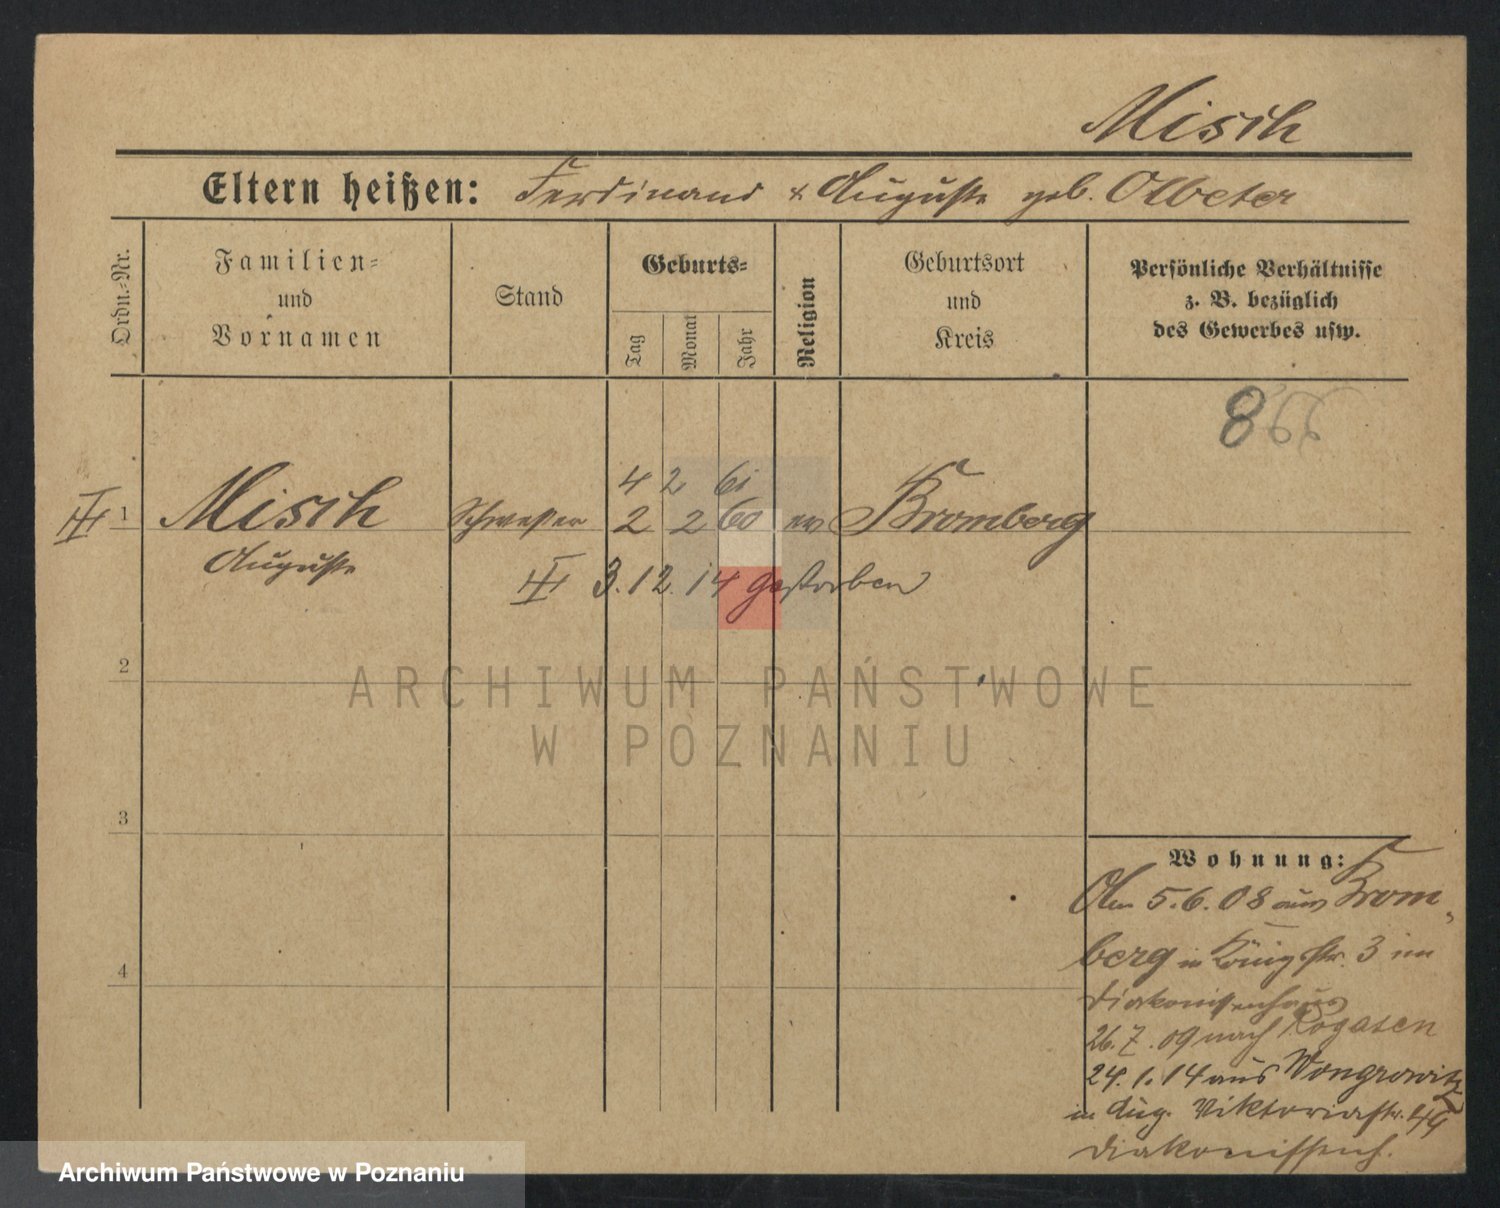 Misch
Eltern heißen: Ferdinand & Auguste geb. Olbeter
Ordn.-Nr.
Familien-
und
Vornamen
Stand
Geburts-
Tag
Monat
Jahr
Religion
Geburtsort
und
Kreis
Persönliche Verhältnisse
z. B. bezüglich
des Gewerbes usw.
866
4 2 61
III 1 Misch Schwester 2 2 60 ev Bromberg
Auguste
III 3.12.14 gestorben
2
3
4
Wohnung:
Am 5.6.08 aus Brom-
berg in Königstr. 3 im
Diakonissenhaus
26.7.09 nach Rogasen
24.1.14 aus Wongrowitz
in Aug. Viktoriastr. 49
Diakonissenh.
ARCHIWUM PAŃSTWOWE
W POZNANIU
Archiwum Państwowe w Poznaniu